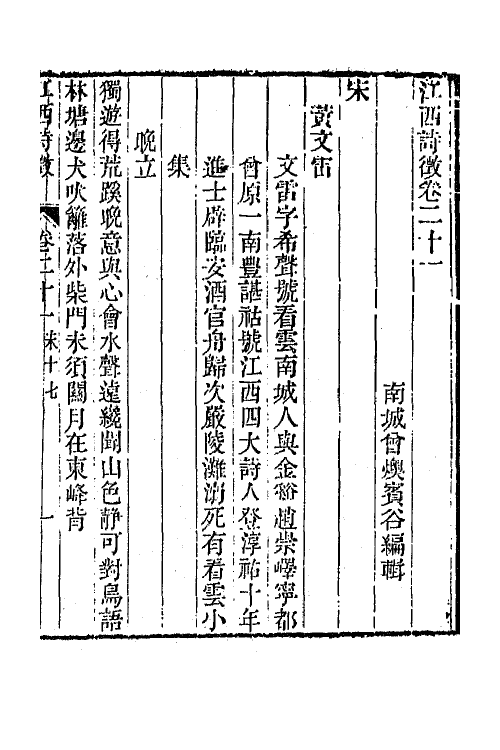 江西詩徵卷二十一
南城曾燠賓谷編輯
宋
黃文雷
文雷字希聲號看雲南城人與金谿趙崇嶧寧都
曾原一南豐諶祜號江西四大詩人登淳祐十年
進士辟臨安酒官舟歸次嚴陵灘溺死有看雲小
集
晚立
獨遊得荒蹊晚意與心會水聲遠繞聞山色静可對鳥語
林塘邊犬吠籬落外柴門未須關月在東峰背
江西詩徵 卷二十一 宋十七 一